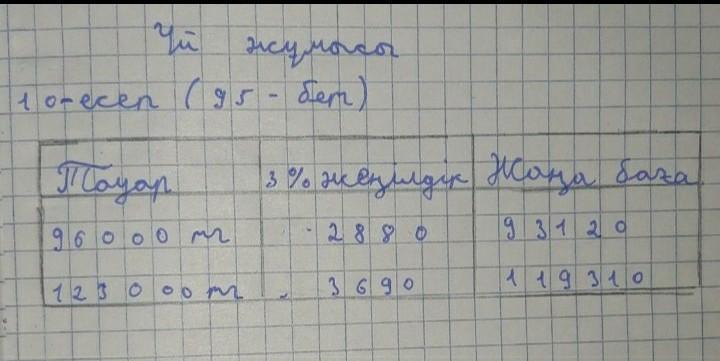 Үй жұмысы
10-есеп (95-бет)
Тауар 3% жеңілдік Жаңа баға
96000 тг 2880 93120
123000 тг 3690 119310